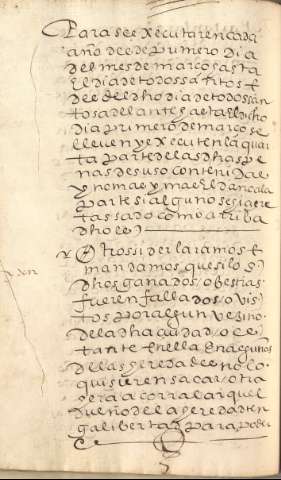 Para see xecutar en cada
año desde primero dia
del mes de março fasta
El dia de todos santos E
desde el dho dia de todos san
tos adelante fasta el dicho
dia primero de março se
lleven y executen la quar
ta parte de las dhas pe
nas de suso contenidas
y no mas y mas El daño a la
parte si alguno se siere
tassado como arriba
dho es
Otrossi declaramos E
mandamos que si los
dhos ganados o bestias
fueren fallados o vis
tos por algun vezino
de la dha ciudad o ce
tante en ella En algunos
de las heredades no lo
quisieren sacar o tra
er a corral a quel
dueño de la heredad ten
ga libertad para poder